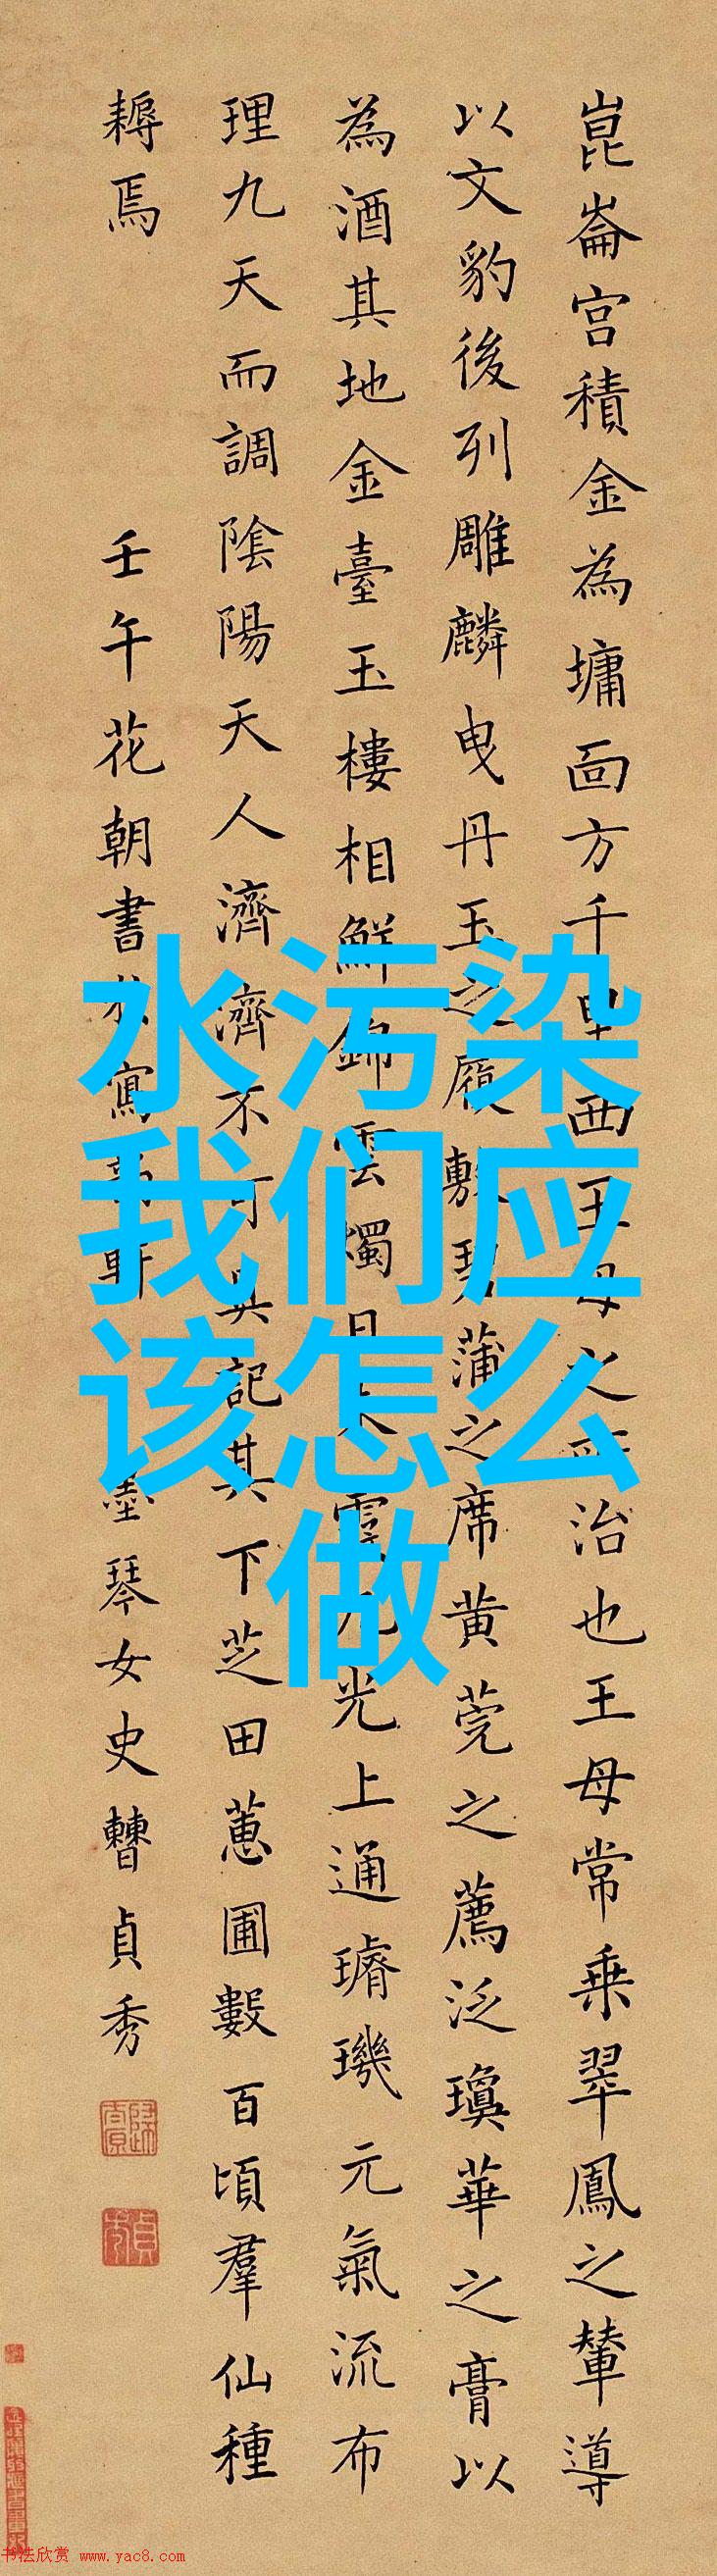 崑崙宫積金為墉面方千里西王母之所治也王母常乗翠鳳之輦導
以文豹後列雕麟曳丹玉之履敷碧蒲之席黄莞之薦泛瓊華之膏以
為酒其地金臺玉樓相鮮錦雲燭日朱霞九光上通璿璣元氣流布
理九天而調陰陽天人濟濟不可具記其下芝田蕙圃數百頃羣仙種
耨焉
壬午花朝書於寫韵軒 墨琴女史曹貞秀
水污染
我们应
该怎么
做
书法欣赏 www.yac8.com